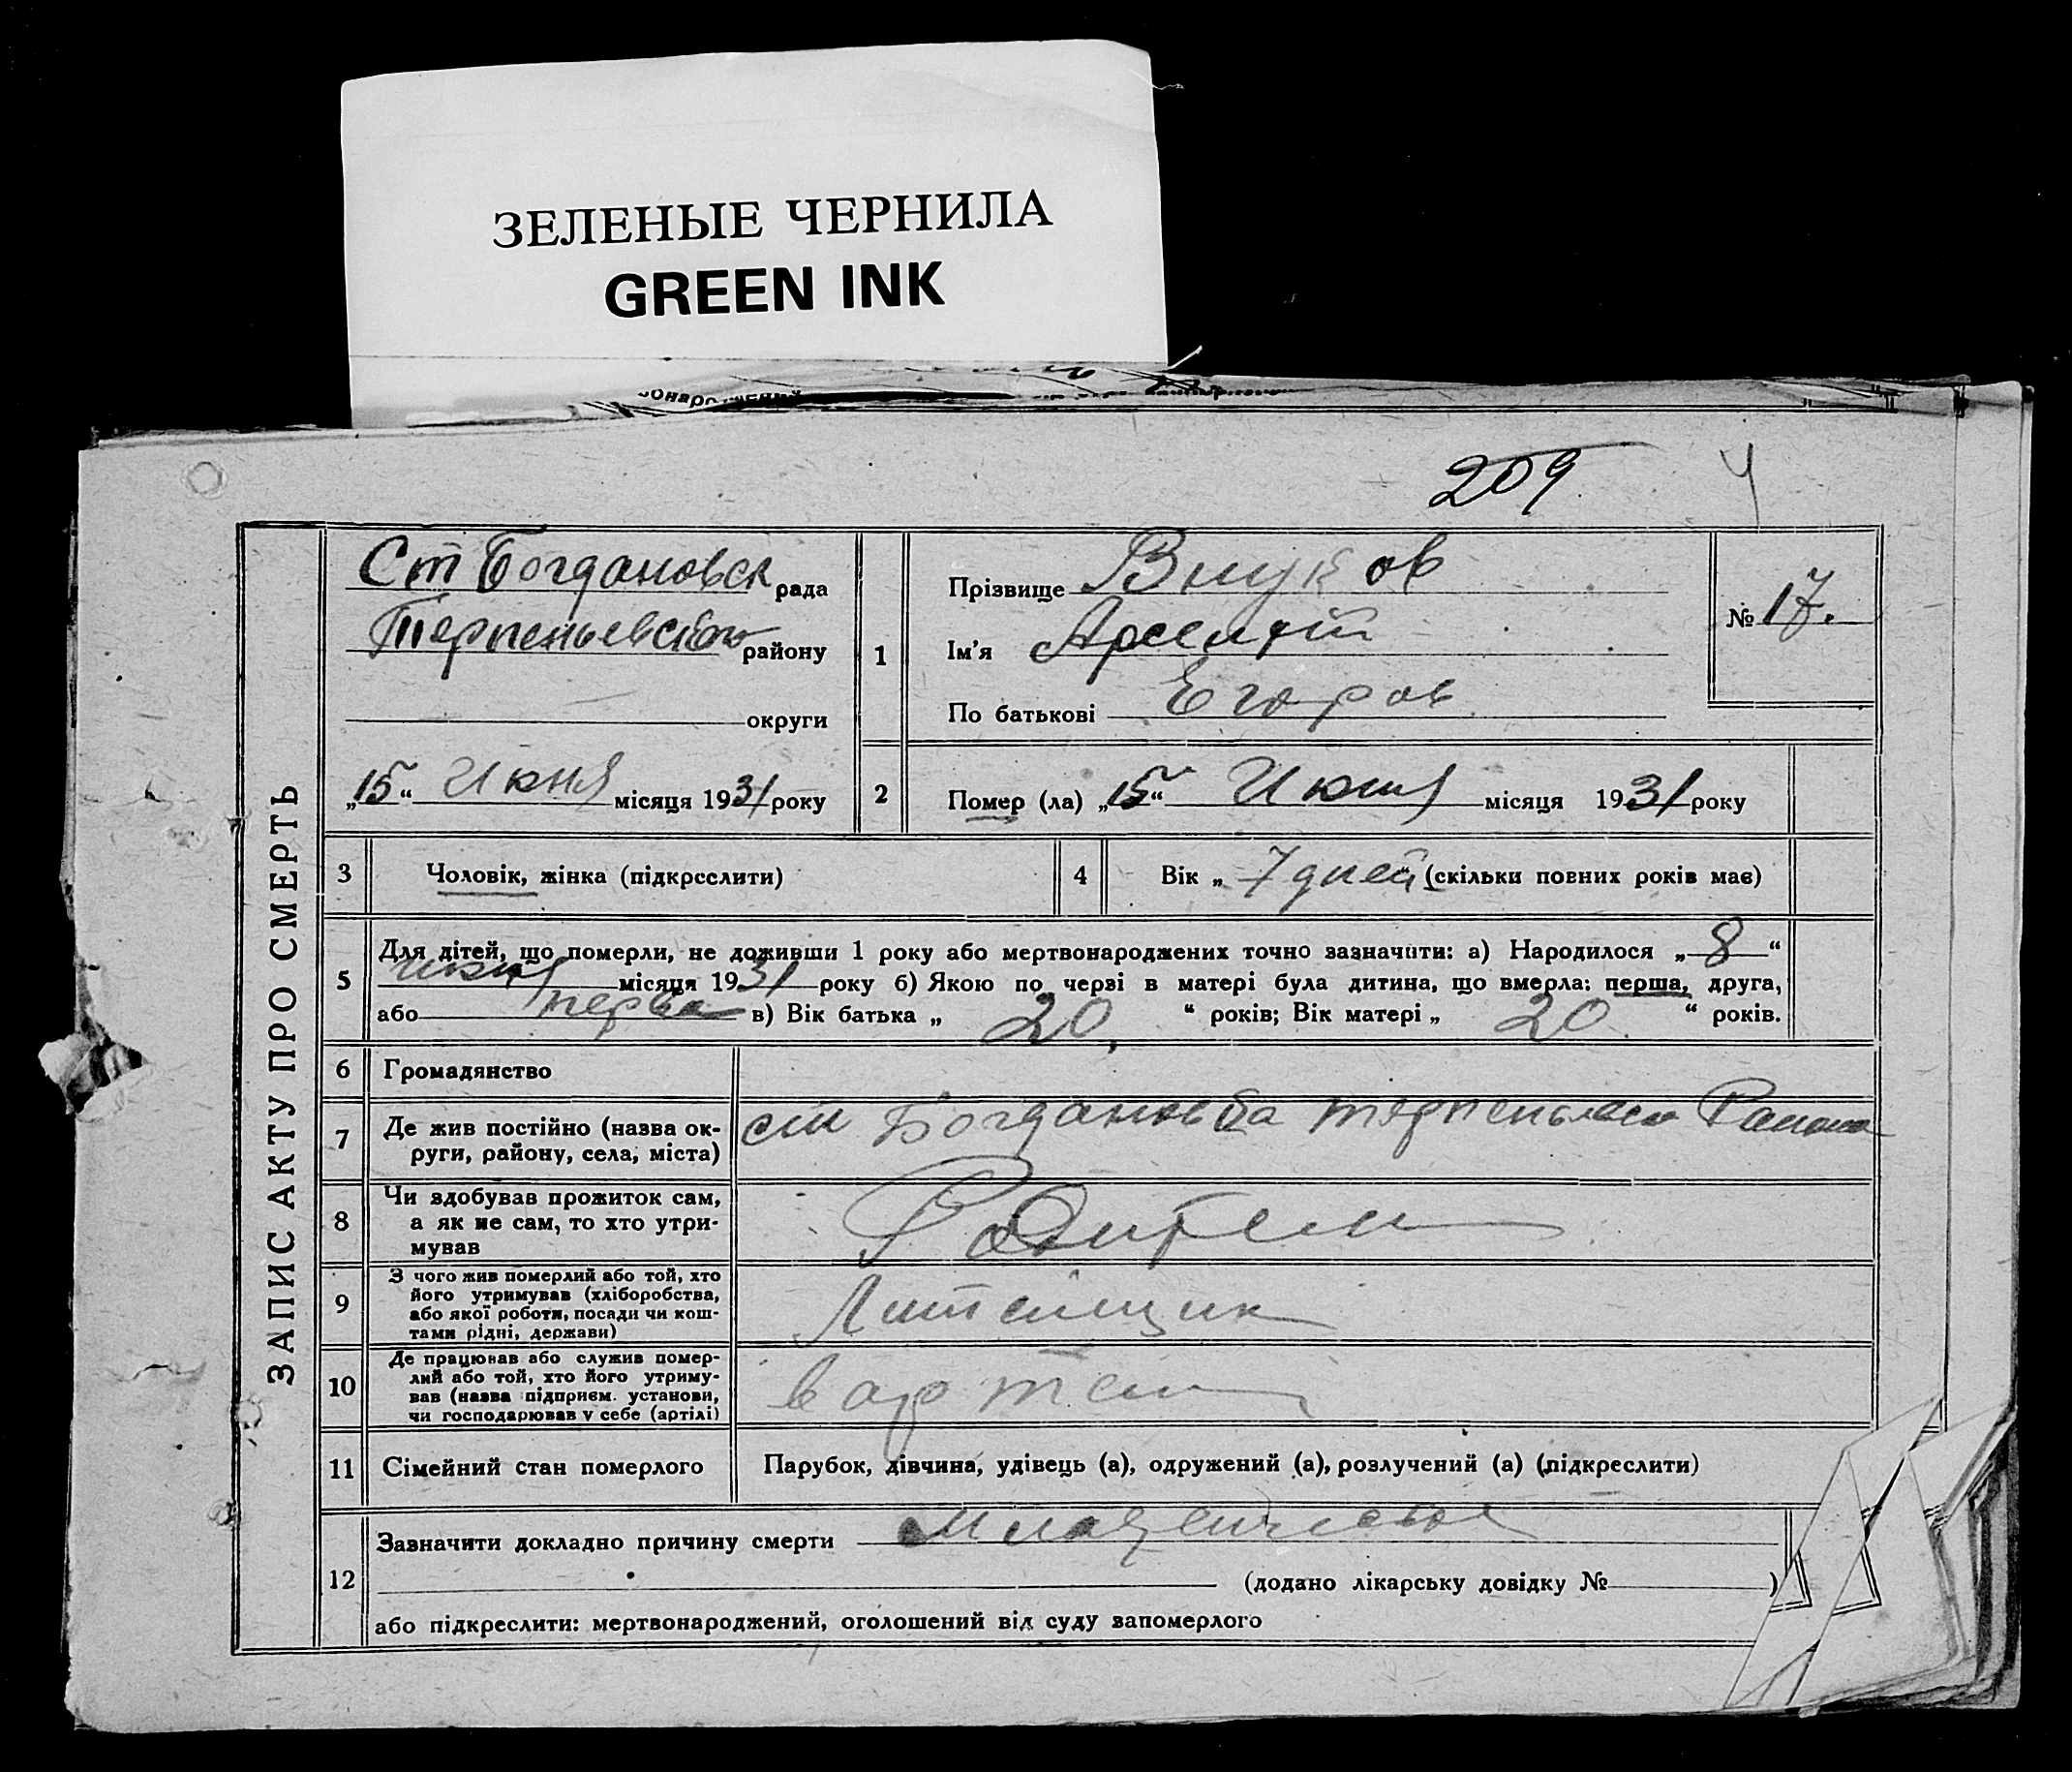 ЗЕЛЕНЫЕ ЧЕРНИЛА
GREEN INK
209
ЗАПИС АКТУ ПРО СМЕРТЬ
Ст Богдановск рада
Терпеньевского району
округи
"15" Июня місяця 1931 року
1
Прізвище Внуков
Ім'я Арсентій
По батькові Егоров
№ 17.
2
Помер (ла) "15" Июня місяця 1931 року
3 Чоловік, жінка (підкреслити)
4 Вік „ 7 дней (скільки повних років має)
5 Для дітей, що померли, не доживши 1 року або мертвонароджених точно зазначити: а) Народилося „ 8 “
июня місяця 1931 року б) Якою по черві в матері була дитина, що вмерла: перша, друга,
або перва в) Вік батька „ 20, “ років; Вік матері „ 20 “ років.
6 Громадянство
7 Де жив постійно (назва ок-
руги, району, села, міста)
ст Богдановка Района
8 Чи здобував прожиток сам,
а як не сам, то хто утри-
мував
Родители
9 З чого жив померлий або той, хто
його утримував (хліборобства,
або якої роботи, посади чи кош-
тами рідні, держави)
10 Де працював або служив помер-
лий або той, хто його утриму-
вав (назва підприєм. установи,
чи господарював у себе (артілі)
в артели
11 Сімейний стан померлого
Парубок, дівчина, удівець (а), одружений (а), розлучений (а) (підкреслити)
12 Зазначити докладно причину смерти Младенческая
(додано лікарську довідку № )
або підкреслити: мертвонароджений, оголошений від суду запомерлого